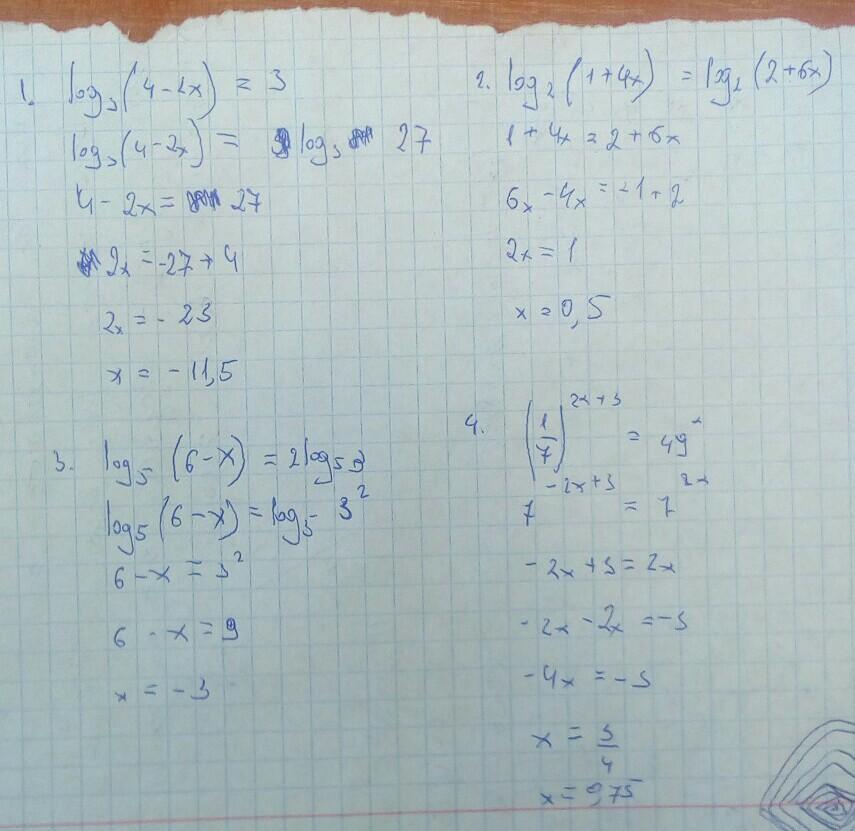 1. log₃(4-2x) = 3
log₃(4-2x) = log₃ 27
4-2x = 27
2x = -27+4
2x = -23
x = -11,5
2. log₂(1+4x) = log₂(2+6x)
1+4x = 2+6x
6x-4x = -1+2
2x = 1
x = 0,5
3. log₅(6-x) = 2log₅3
log₅(6-x) = log₅ 3²
6-x = 3²
6-x = 9
x = -3
4. (1/7)^(2x+3) = 49^x
7^(-2x+3) = 7^(2x)
-2x+3 = 2x
-2x-2x = -3
-4x = -3
x = 3/4
x = 0,75